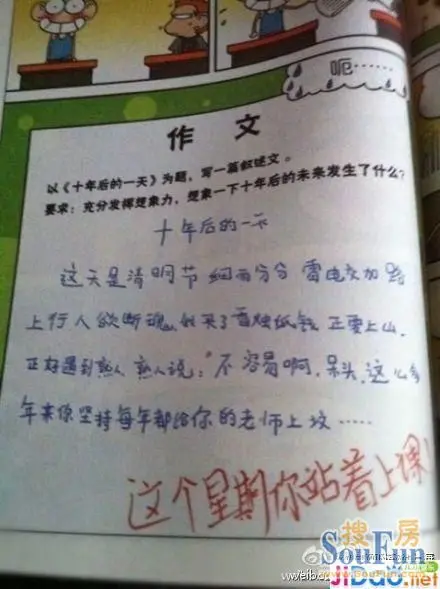 呃……
作 文
以《十年后的一天》为题，写一篇叙述文。
要求：充分发挥想象力，想象一下十年后的未来发生了什么？
十年后的一天
这天是清明节 细雨分分 雷电交加 路
上行人欲断魂,我买了香烛纸钱 正要上山.
正好遇到熟人 熟人说："不容易啊,呆头,这么多
年来你坚持每年都给你的老师上坟……
这个星期你站着上课!
搜房
SouFun
JiDao.net